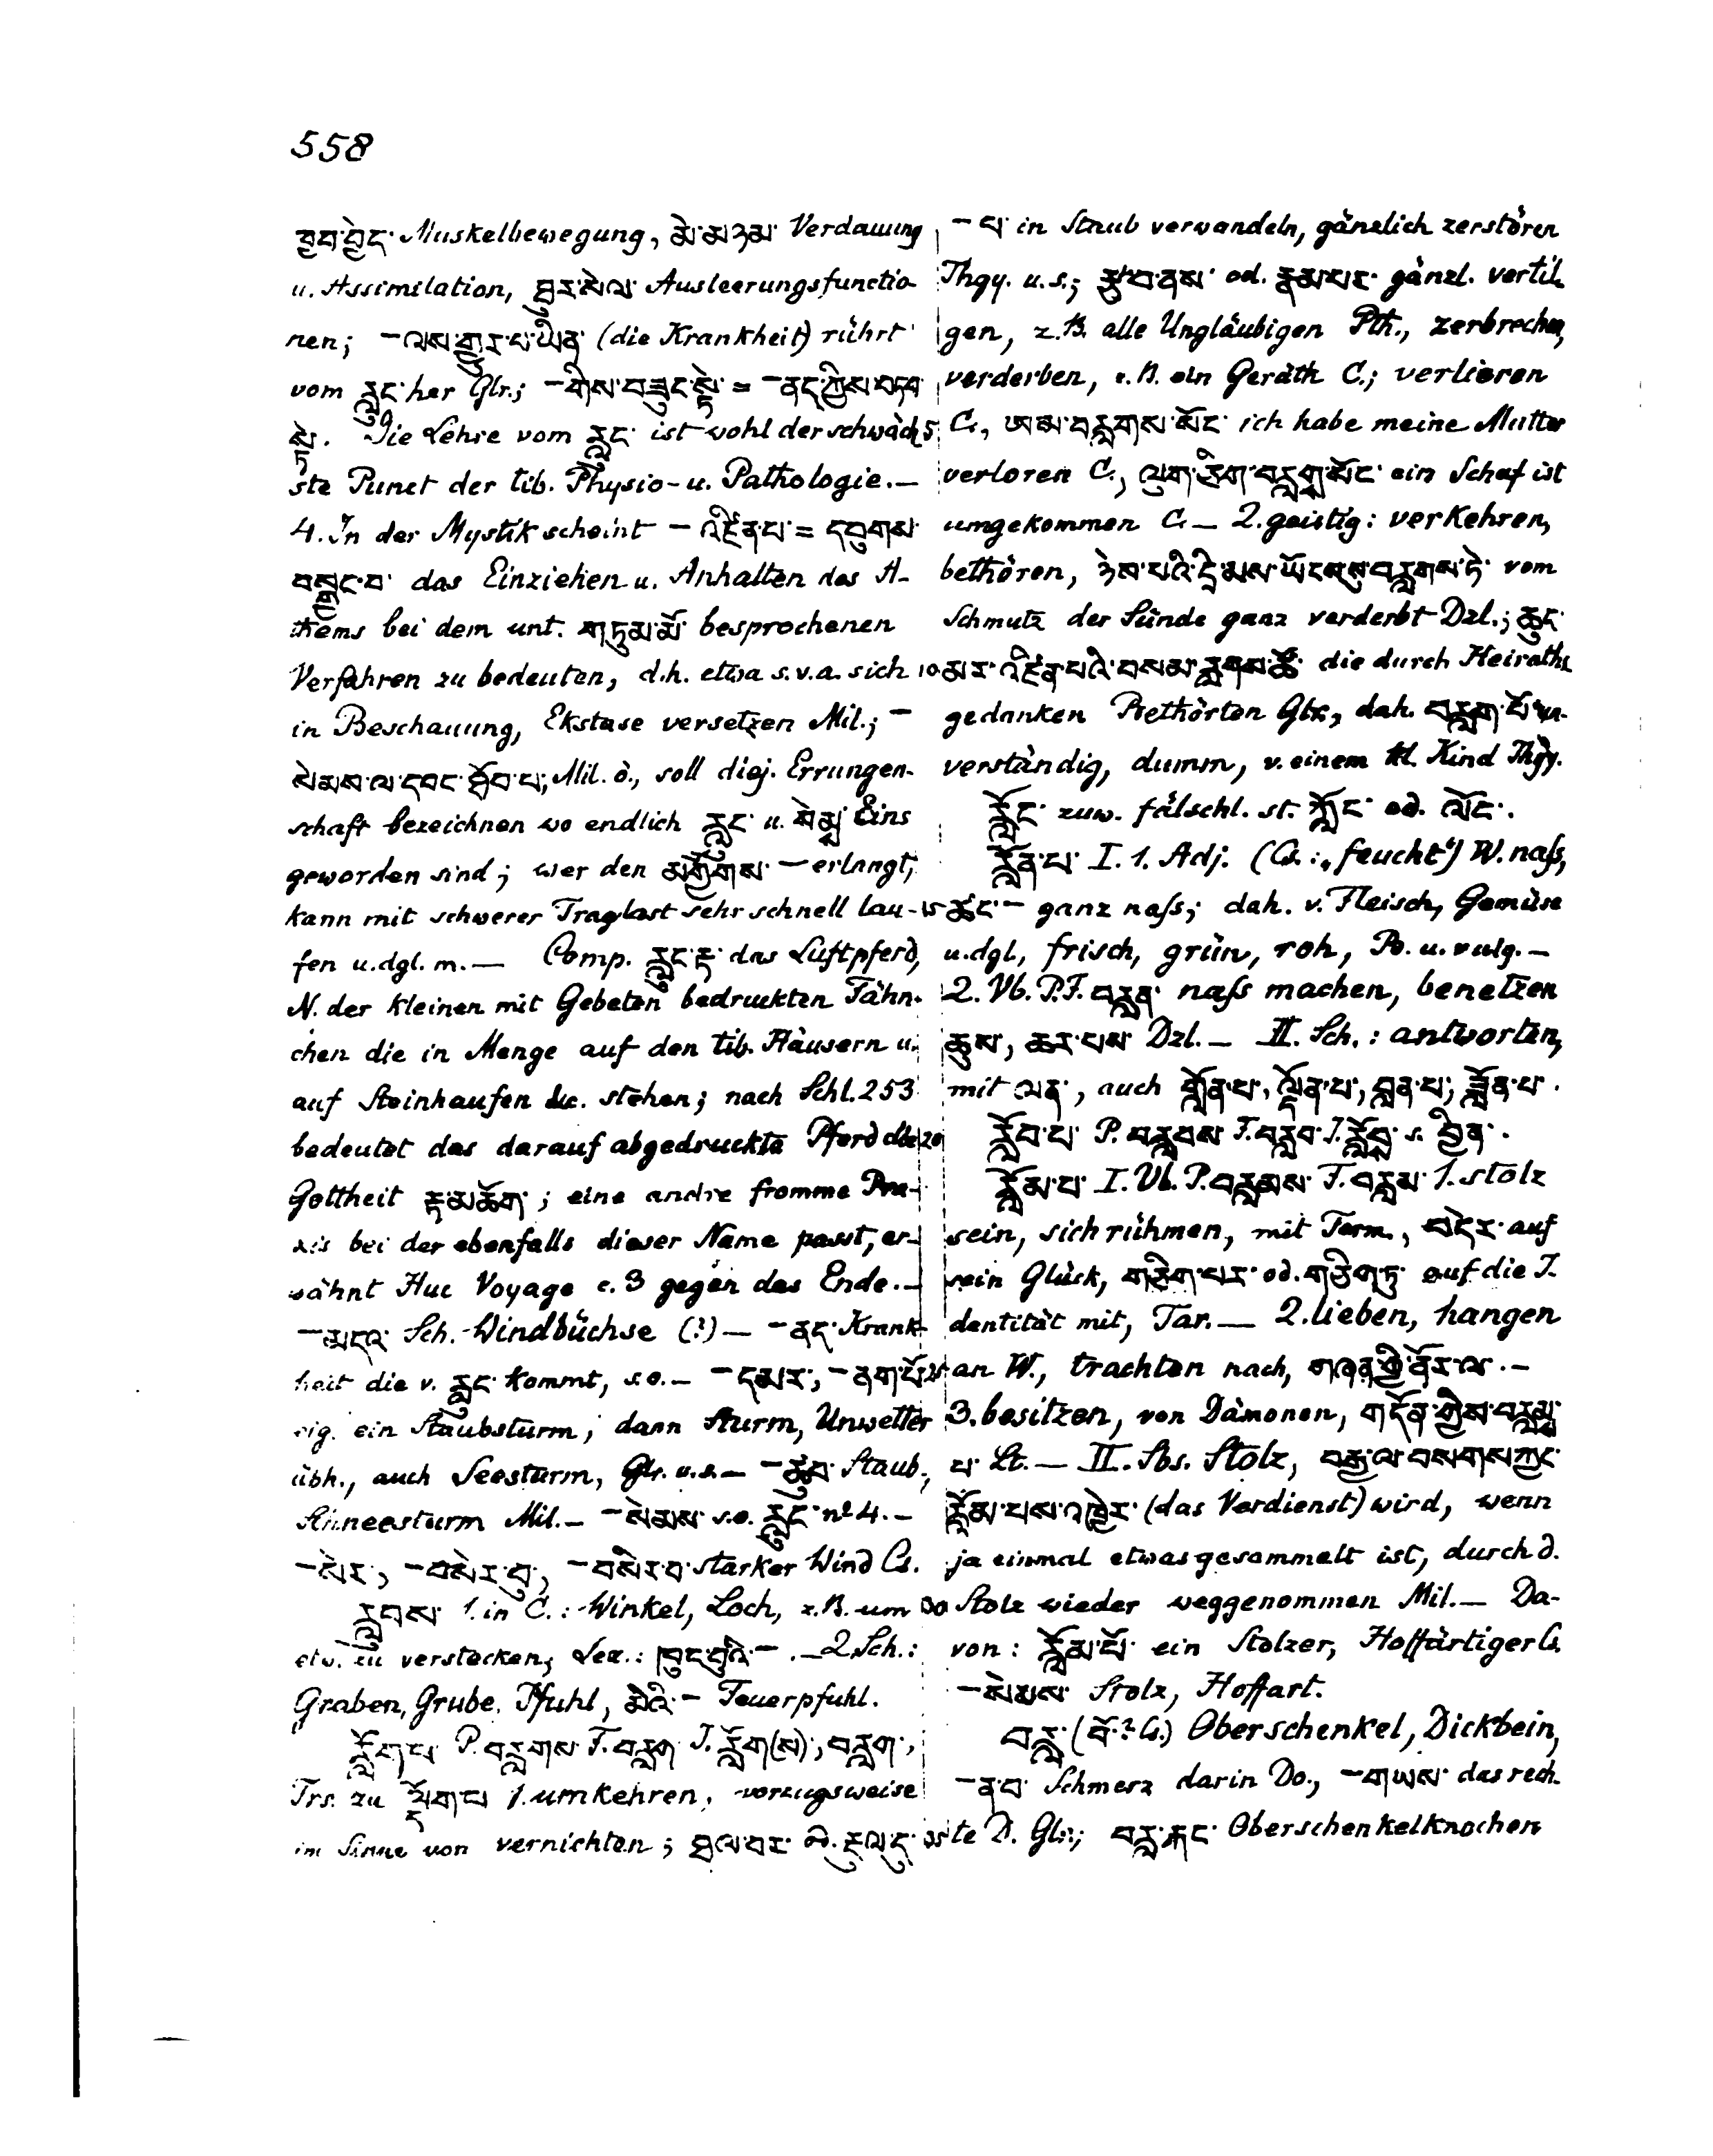 558
ཁྱབ་བྱེད་ Muskelbewegung, མེ་མཉམ་ Verdauung
u. Assimilation, ཐུར་སེལ་ Ausleerungsfunctio-
nen; –ལས་གྱུར་པ་ཡིན་ (die Krankheit) rührt
vom རླུང་ her Glr.; –གིས་བཟུང་སྟེ་ = –ནད་ཀྱིས་བཏབ་
སྟེ་. Die Lehre vom རླུང་ ist wohl der schwäch- 5
ste Punct der tib. Physio- u. Pathologie. —
4. In der Mystik scheint – འཛིན་པ་ = དབུགས་
བསྲུང་བ་ das Einziehen u. Anhalten des A-
thems bei dem unt. གཏུམ་མོ་ besprochenen
Verfahren zu bedeuten, d.h. etwa s.v.a. sich 10
in Beschauung, Ekstase versetzen Mil.; –
སེམས་ལ་དབང་ཐོབ་པ་; Mil. ö., soll diej. Errungen-
schaft bezeichnen wo endlich རླུང་ u. སེམས་ Eins
geworden sind; wer den མགྱོགས་ – erlangt,
kann mit schwerer Traglast sehr schnell lau- 15
fen u.dgl. m. — Comp. རླུང་རྟ་ das Luftpferd,
N. der kleinen mit Gebeten bedruckten Fähn-
chen die in Menge auf den tib. Häusern u.
auf Steinhaufen &c. stehen; nach Schl. 253
bedeutet das darauf abgedruckte Pferd die 20
Gottheit རྟ་མཆོག་; eine andre fromme Pra-
xis bei der ebenfalls dieser Name passt, er-
wähnt Huc Voyage c. 3 gegen das Ende. —
–མདའ་ Sch. Windbüchse (?) — –ནད་ Krank-
heit die v. རླུང་ kommt, s.o. — –དམར་, –ནག་པོ་ 25
eig. ein Staubsturm; dann Sturm, Unwetter
übh., auch Seesturm, Glr. u.s. — –ཚུབ་ Staub-,
Schneesturm Mil. — –སེམས་ s.o. རླུང་ no 4. —
–སེར་, –བསེར་བུ་, –བསེར་བ་ starker Wind Cs.
རླབས་ 1. in C.: Winkel, Loch, z.B. um 30
etw. zu verstecken; Lex.: ཁུང་བུའི་ –. — 2. Sch.:
Graben, Grube, Pfuhl, མེའི་ – Feuerpfuhl.
རློག་པ་ P. བརླགས་ F. བརླག་ I. རློག(ས), བརླག་,
Trs. zu ལྡོག་པ་ 1. umkehren, vorzugsweise
im Sinne von vernichten; ཐལ་བར་ od. རྡུལ་དུ་ 35
– པ་ in Staub verwandeln, gänzlich zerstören
Thgy. u.s.; རྩ་བ་ནས་ od. རྣམ་པར་ gänzl. vertil-
gen, z.B. alle Ungläubigen Pth., zerbrechen,
verderben, z.B. ein Geräth C.; verlieren
C., ཨམ་བརླགས་སོང་ ich habe meine Mutter
verloren C., ལུག་ཅིག་བརླགས་སོང་ ein Schaf ist
umgekommen C. — 2. geistig: verkehren,
bethören, ཉེས་པའི་དྲི་མས་ཡོངསུ་བརླགས་ཏེ་ vom
Schmutz der Sünde ganz verderbt Dzl.; ཆུང་
མར་འཛིན་པའི་བསམ་རླགས་ཚོ་ die durch Heiraths-
gedanken Bethörten Glr., dah. བརླག་པོ་ un-
verständig, dumm, v. einem kl. Kind Thgy.
རློང་ zuw. fälschl. st. ཀློང་ od. ལོང་.
རློན་པ་ I. 1. Adj. (Cs.: „feucht“) W. naſs,
རྩང་ – ganz naſs; dah. v. Fleisch, Gemüse
u.dgl., frisch, grün, roh, Po. u. vulg. —
2. Vb. P.F. བརླན་ naſs machen, benetzen
ཆུས་, ཆར་པས་ Dzl. — II. Sch.: antworten,
mit ལན་, auch གློན་པ་, ལྡོན་པ་, བླན་པ་, ཟློན་པ་.
རློབ་པ་ P. བརླབས་ F. བརླབ་ I. རློབས་ s. བྱིན་.
རློམ་པ་ I. Vb. P. བརླམས་ F. བརླམ་ 1. stolz
sein, sich rühmen, mit Term., བདེར་ auf
sein Glück, གཅིག་པར་ od. གཅིག་ཏུ་ auf die I-
dentität mit, Tar. — 2. lieben, hangen
an W., trachten nach, གཞན་གྱི་ནོར་ལ་. —
3. besitzen, von Dämonen, གདོན་གྱིས་བརླམས་
པ་ Lt. — II. Sbs. Stolz, བརྒྱ་ལ་བསགས་ཀྱང་
རློམ་པས་འཁྱེར་ (das Verdienst) wird, wenn
ja einmal etwas gesammelt ist, durch d.
Stolz wieder weggenommen Mil. — Da-
von: རློམ་པོ་ ein Stolzer, Hoffärtiger Cs.
–སེམས་ Stolz, Hoffart.
བརླ་ (བོ་? Cs.) Oberschenkel, Dickbein,
–ན་བ་ Schmerz darin Do., –གཡས་ das rech-
te D. Glr.; བརླ་རྐང་ Oberschenkelknochen